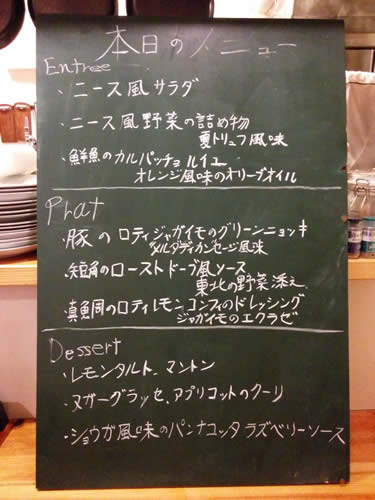 本日のメニュー
Entree
・ニース風サラダ
・ニース風野菜の詰め物
夏トリュフ風味
・鮮魚のカルパッチョ ルイユ
オレンジ風味のオリーブオイル
Prat
・豚のロティジャガイモのグリーンニョッキ
メルダディカンセージ風味
・短角のローストドーブ風ソース
東北の野菜添え
・真魚周のロティレモンコンフィのドレッシング
ジャガイモのエクラゼ
Dessert
・レモンタルト、マントン
・ヌガーグラッセ、アプリコットのクーリ
・ショウガ風味のパンナコッタラズベリーソース